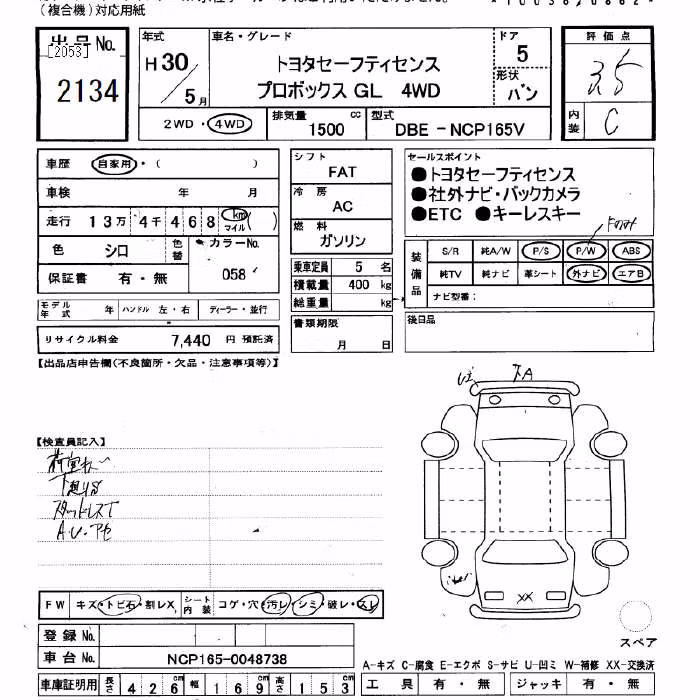 (複合機)対応用紙
出品No. 年式 車名・グレード ドア 評価点
[2053] H30 トヨタセーフティセンス 5 3.5
2134 5月 プロボックス GL 4WD 形状 バン
2WD・4WD 排気量 1500 cc 型式 DBE－NCP165V 内装 C
車歴 自家用・( ) シフト FAT セールスポイント
車検 年 月 冷房 AC ●トヨタセーフティセンス
走行 13万4千468 km マイル ( ) 燃料 ガソリン ●社外ナビ・バックカメラ
●ETC ●キーレスキー
色 シロ 色替 カラーNo. 058 乗車定員 5 名
保証書 有・無 積載量 400 kg
総重量 kg
装備品 S/R 純A/W P/S P/W ABS
純TV 純ナビ 革シート 外ナビ エアB
ナビ型番：
モデル年式 年 ハンドル 左・右 ディーラー・並行
書類期限 月 日 後日品
リサイクル料金 7,440 円 預託済
【出品店申告欄(不良箇所・欠品・注意事項等)】
A
【検査員記入】
スタッドレスT
FW キズ・トビ石・割レX シート内装 コゲ・穴・汚レ・シミ・破レ・スレ
XX
登録 No.
スペア
車台 No. NCP165-0048738
A-キズ C-腐食 E-エクボ S-サビ U-凹ミ W-補修 XX-交換済
車庫証明用 長さ 426 cm 幅 169 cm 高さ 153 cm 工具 有・無 ジャッキ 有・無